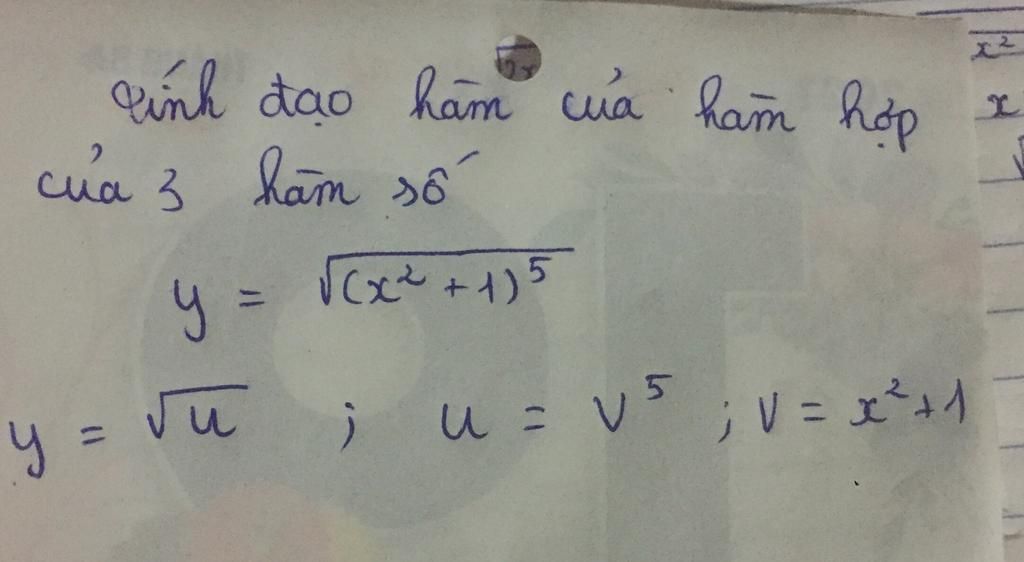 Tính đạo hàm của hàm hợp
của 3 hàm số
y = √(x² + 1)⁵
y = √u ; u = v⁵ ; v = x² + 1
x²
x